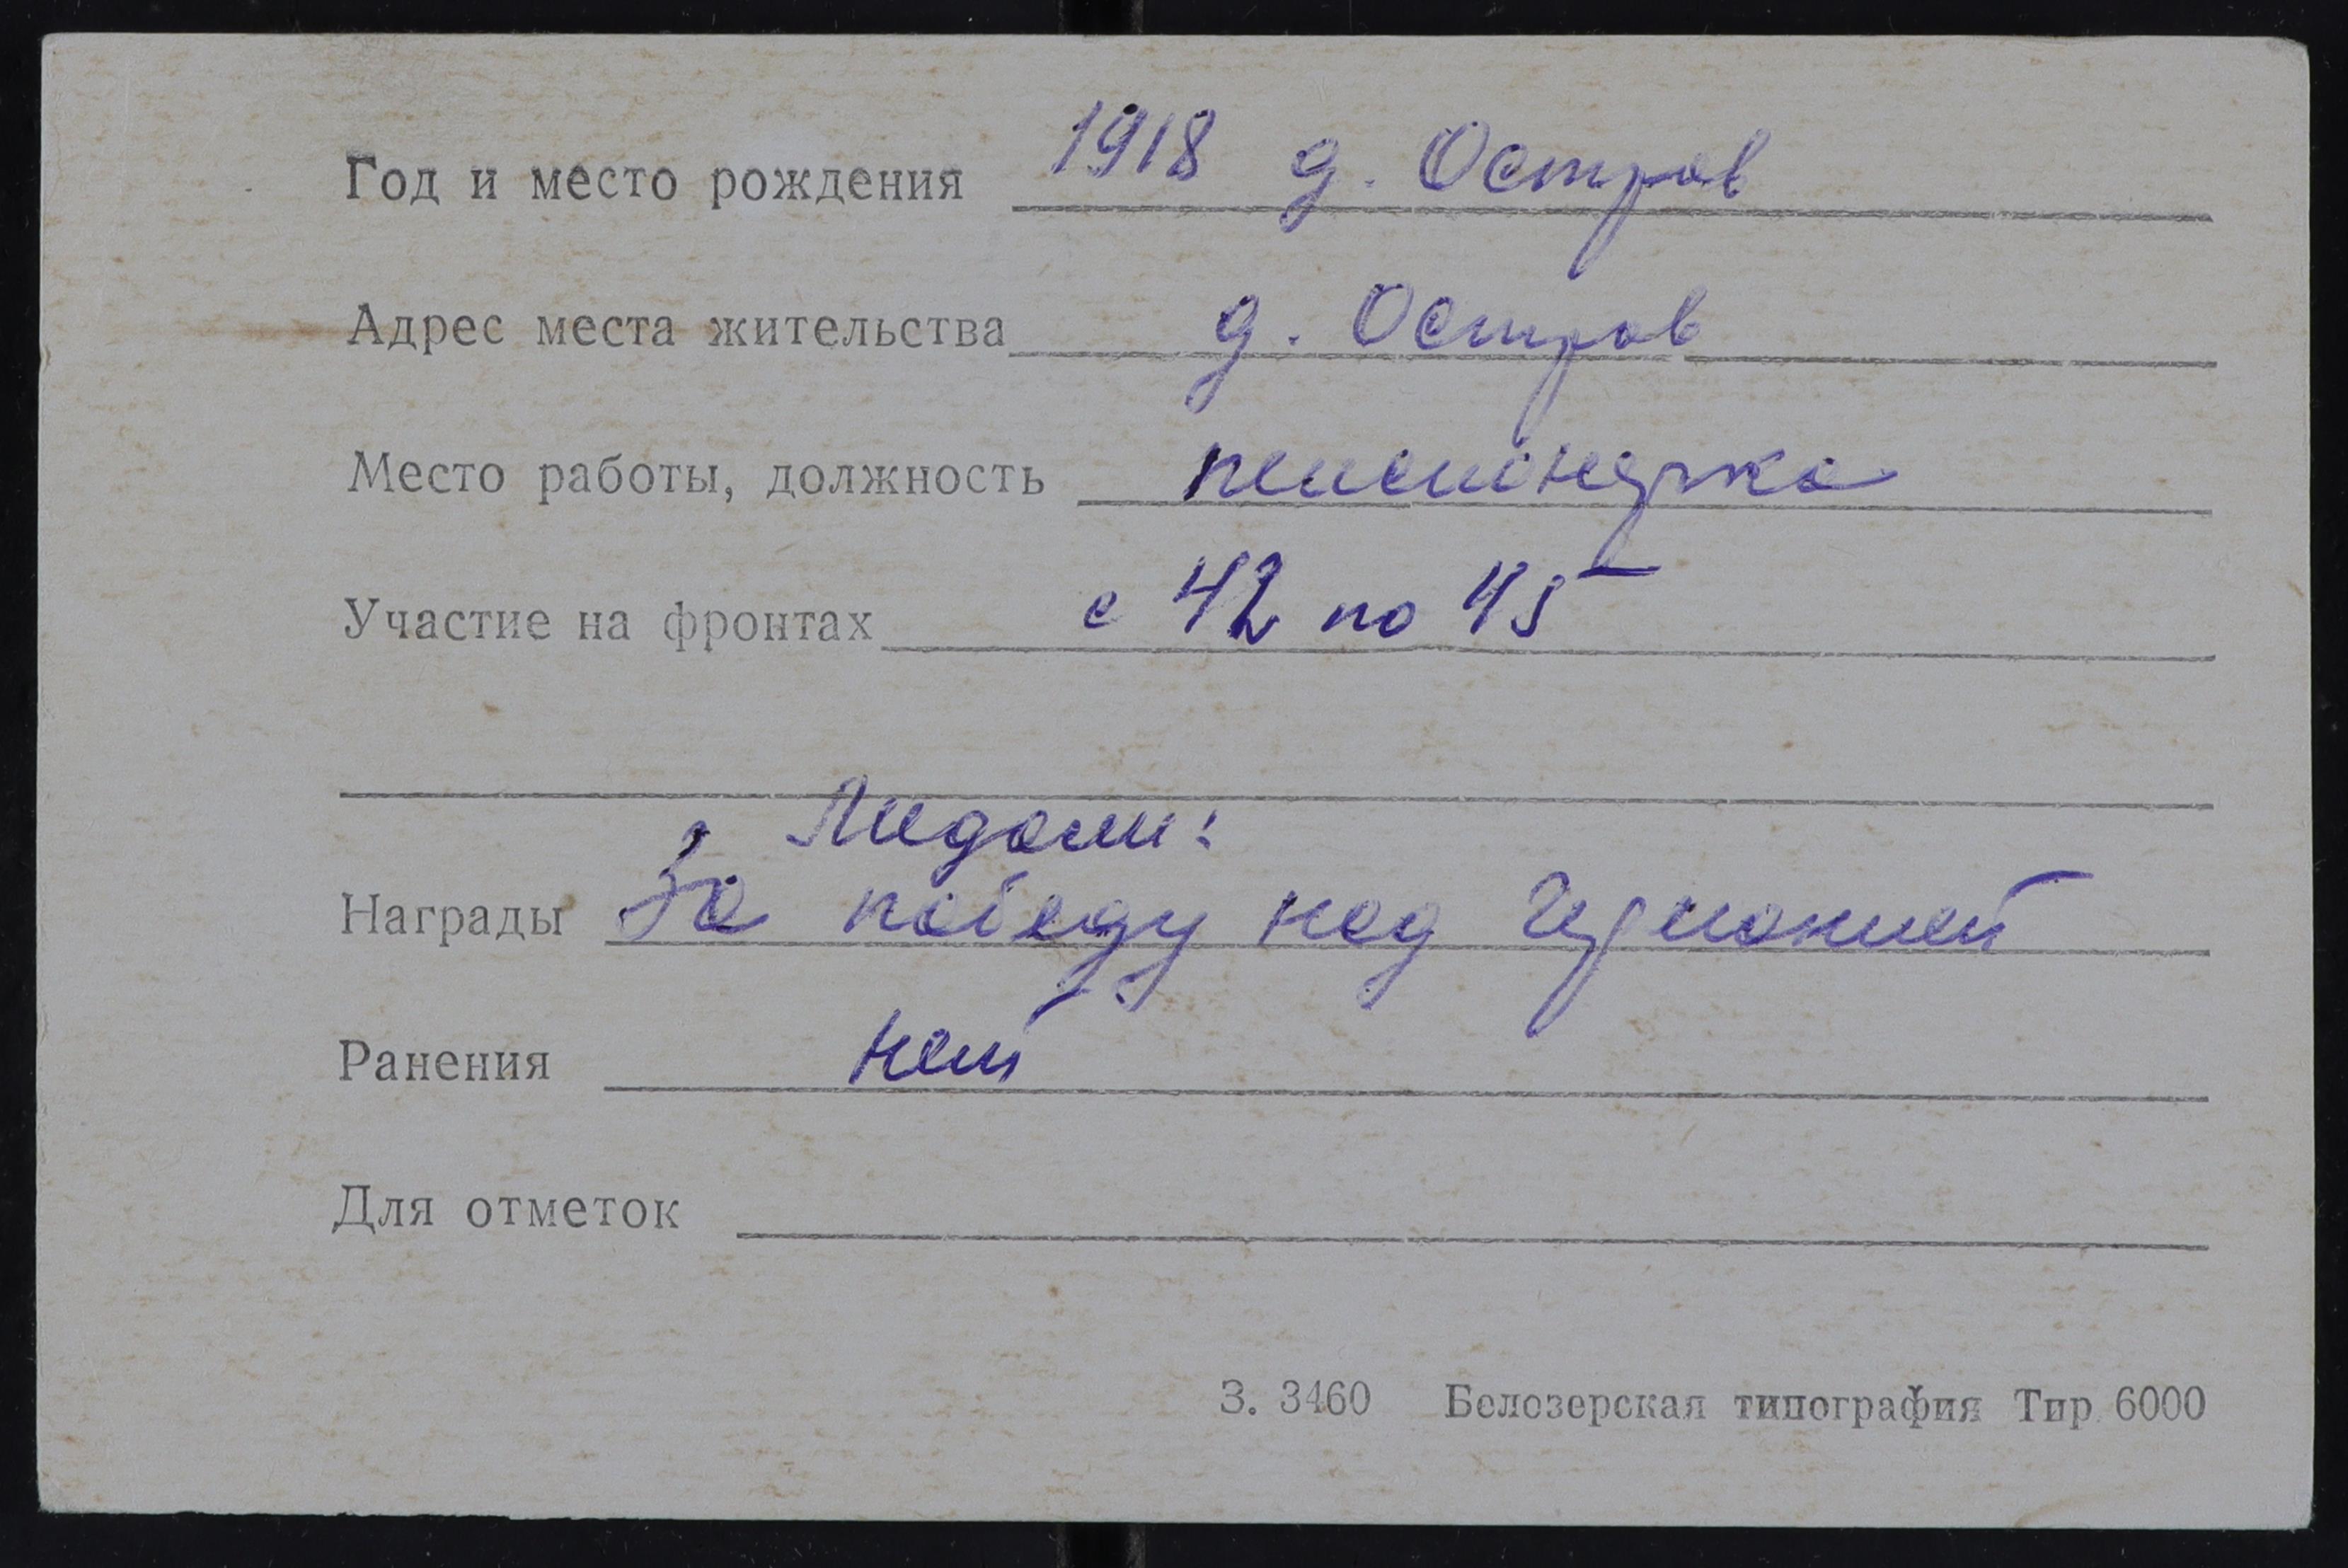 Год и место рождения 1918 д. Остров
Адрес места жительства д. Остров
Место работы, должность пенсионерка
Участие на фронтах с 42 по 45
Медали:
Награды За победу над Германией
Ранения нет
Для отметок
З. 3460 Белозерская типография Тир. 6000